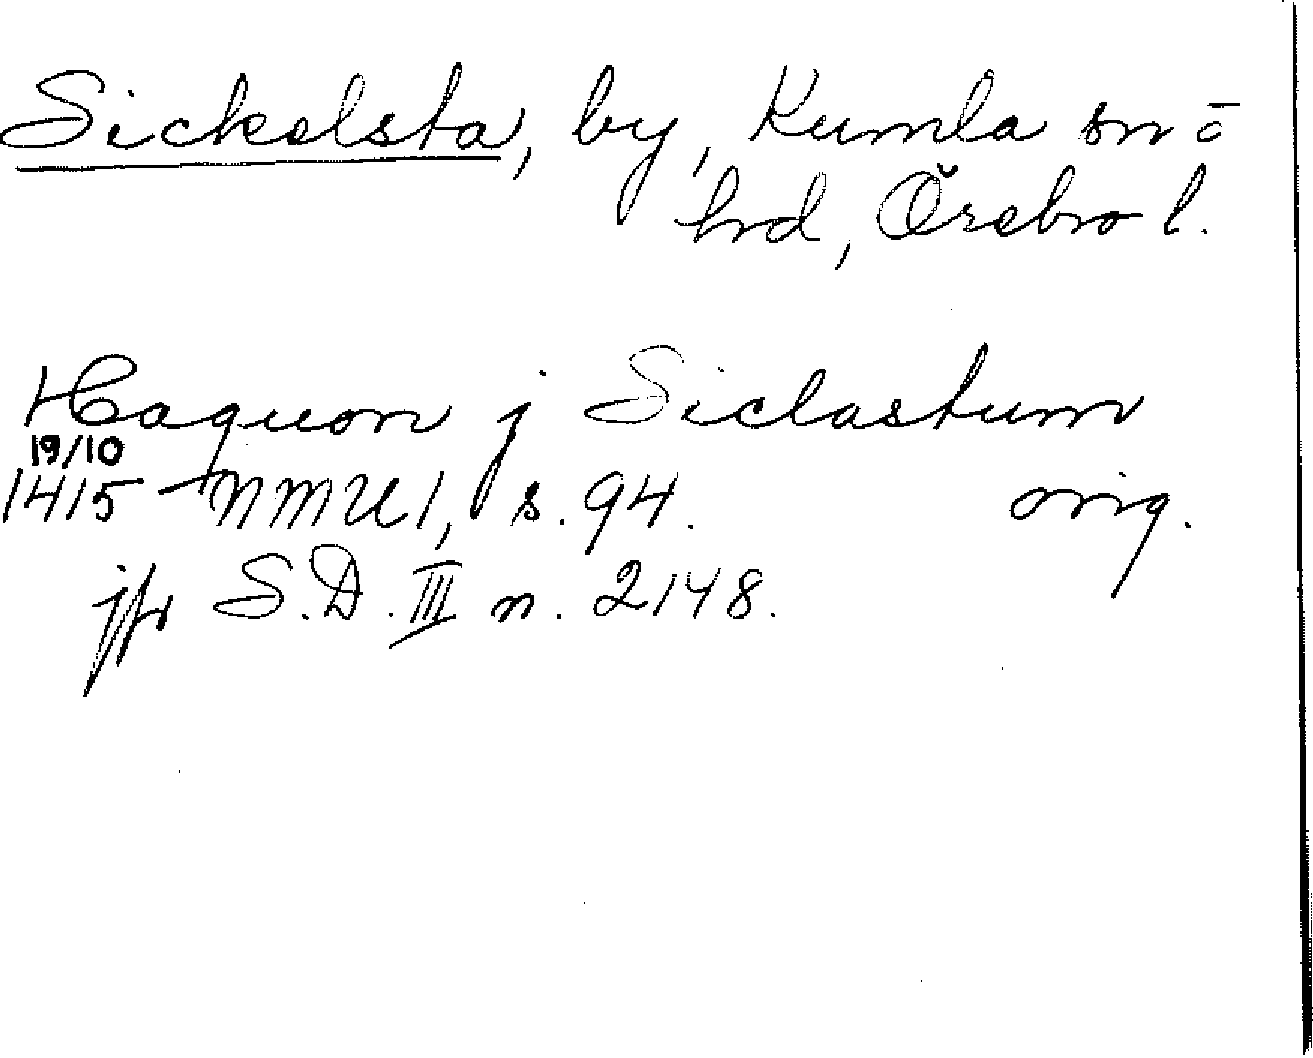 Sickelsta, by, Kumla sn o
hd, Örebro l.
Haquon j Siclastum
19/10
1415 NMU 1, s. 94. orig.
jfr S.D. III n. 2148.